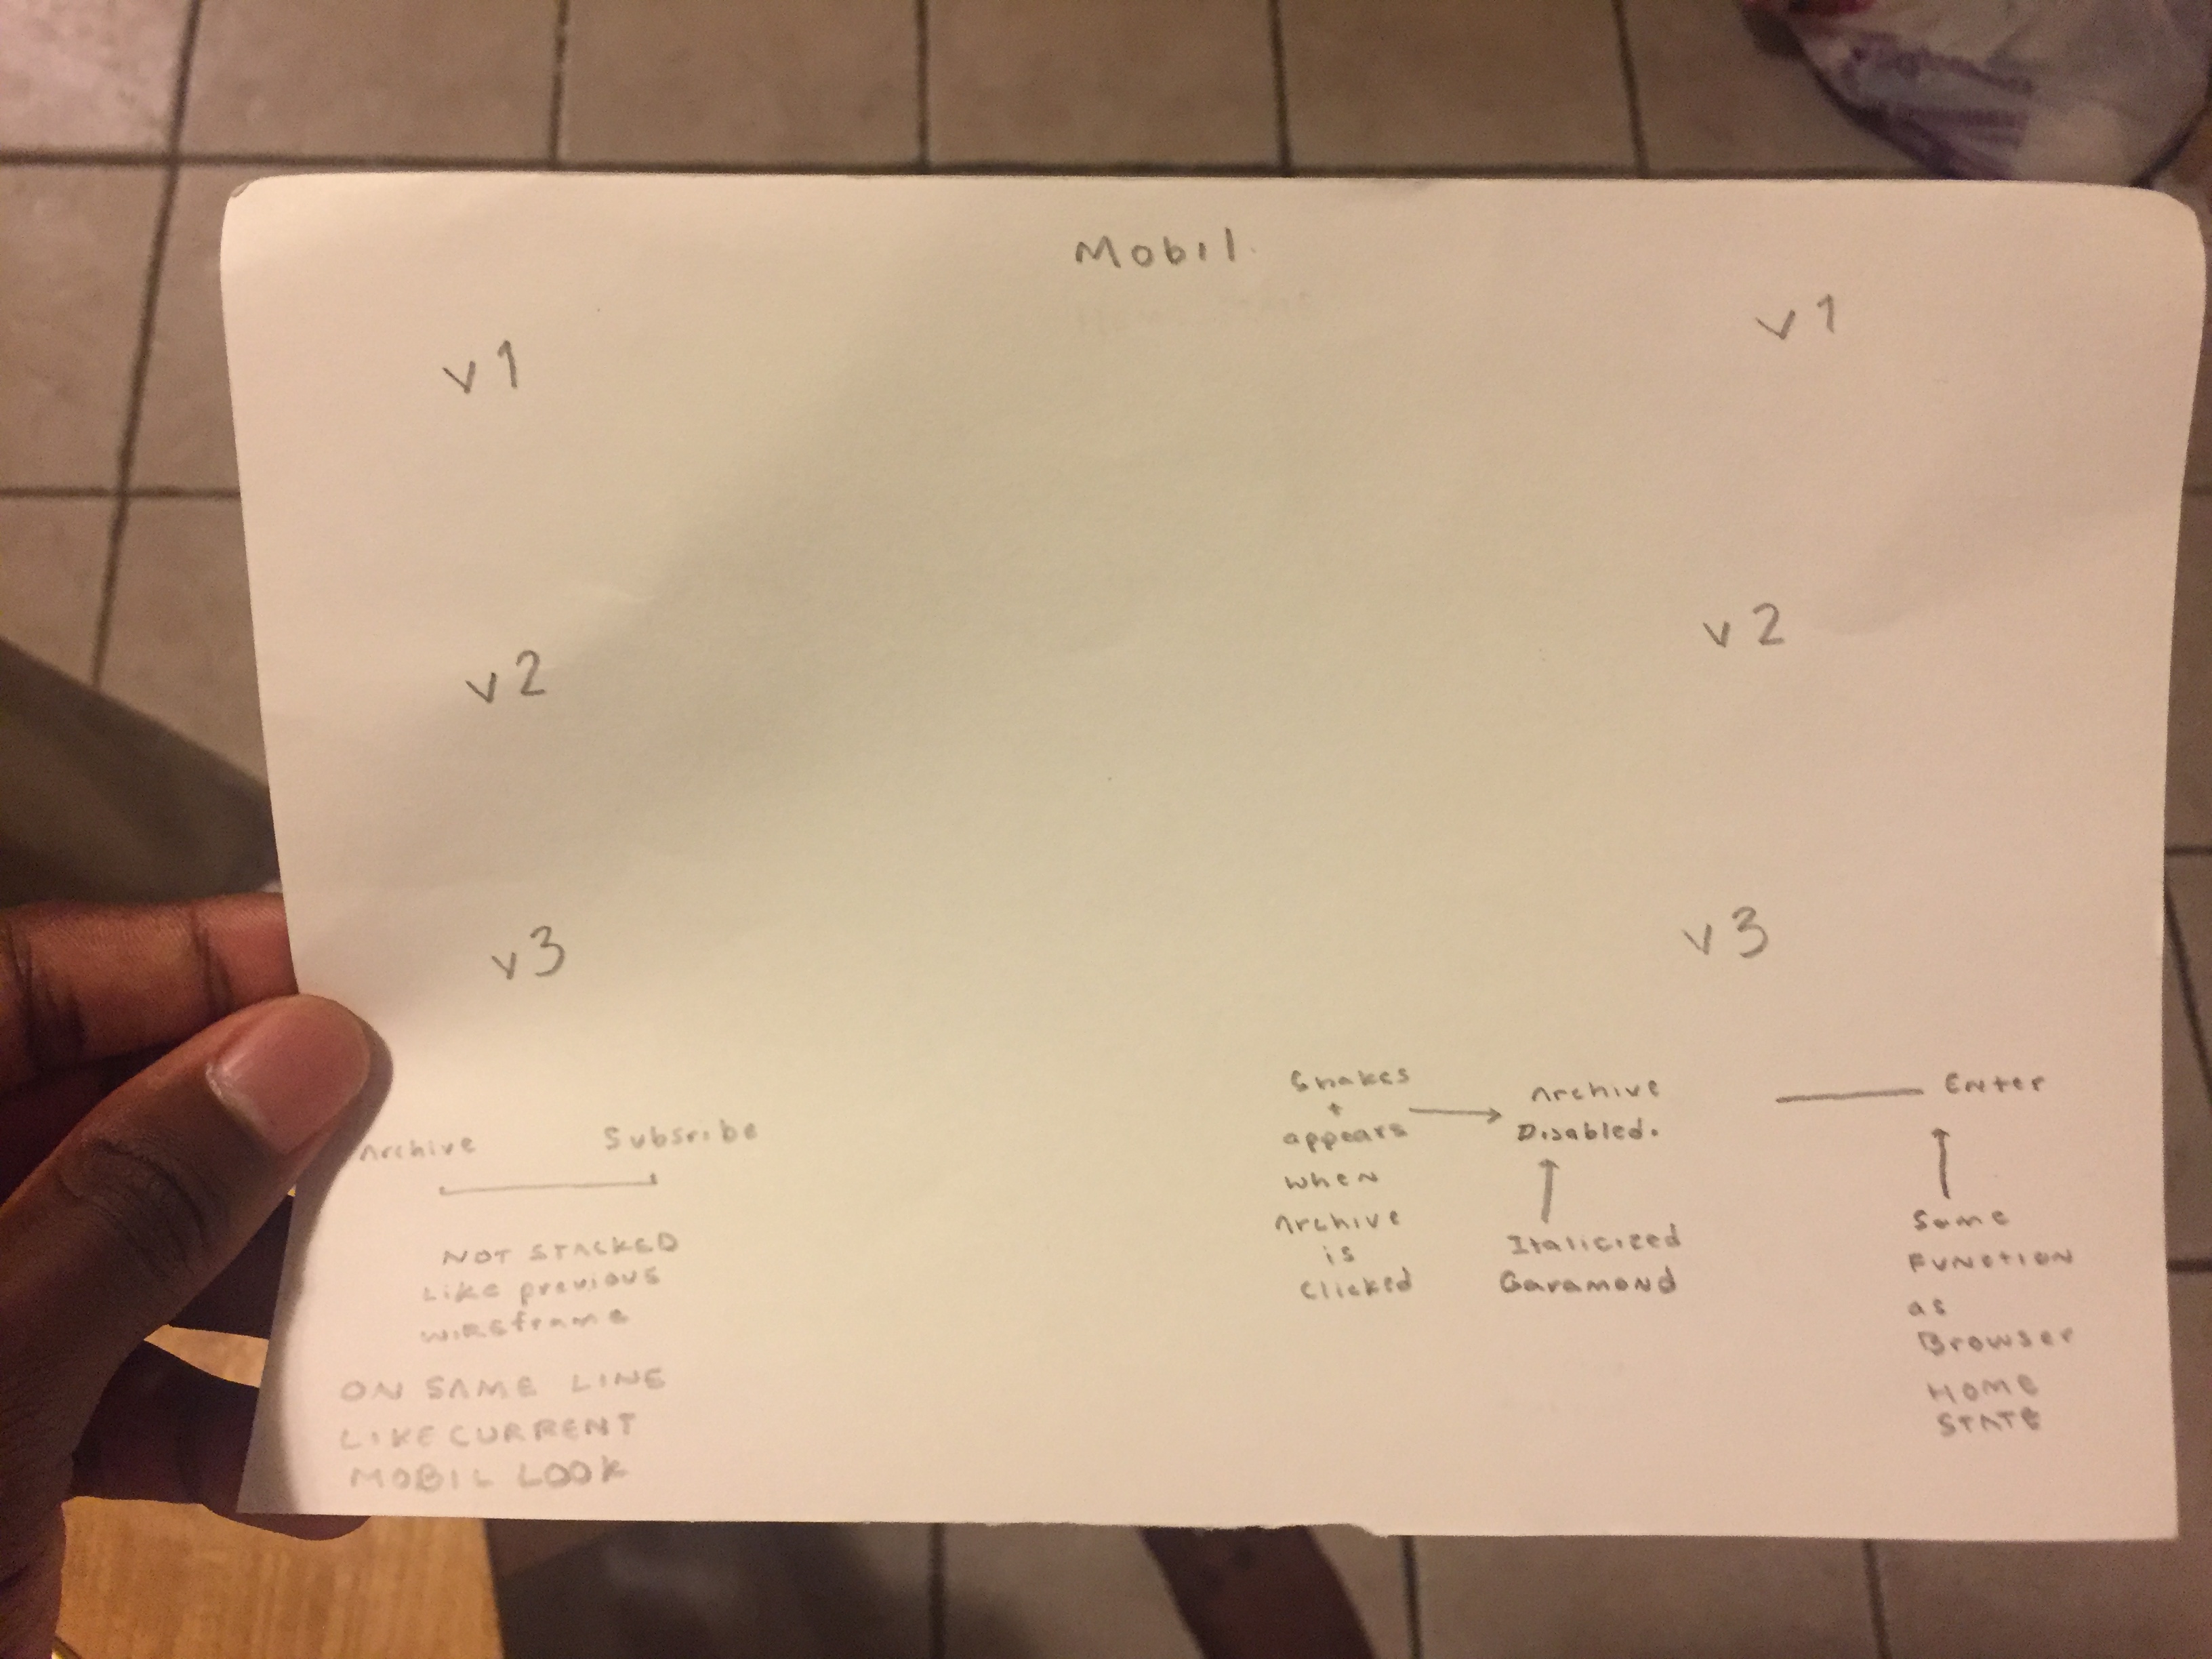 Mobil.
v1
v1
v2
v2
v3
v3
Archive
Subscribe
NOT STACKED
Like previous
wireframe
ON SAME LINE
LIKE CURRENT
MOBIL LOOK
Shakes
+
appears
when
Archive
is
Clicked
Archive
Disabled.
Italicized
Garamond
Enter
Same
Function
as
Browser
Home
State